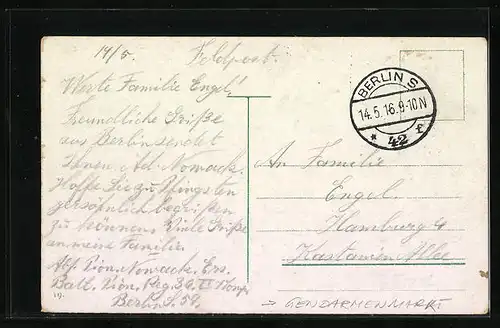 14/5. Feldpost.
Werte Familie Engel!
Freundliche Grüße
aus Berlin sendet
Ihnen Ad. Nowack.
Hoffe Sie zu Pfingsten
persönlich begrüßen
zu können. Viele Grüße
an meine Familie.
Abs. Pion. Nowack. Ers.
Batl. Pion. Reg. 36. II Komp.
Berlin S. 59.
BERLIN S
14.5.16.9-10N
* 42 f
An Familie
Engel.
Hamburg 4
Kastanien Allee
→ GENDARMENMARKT